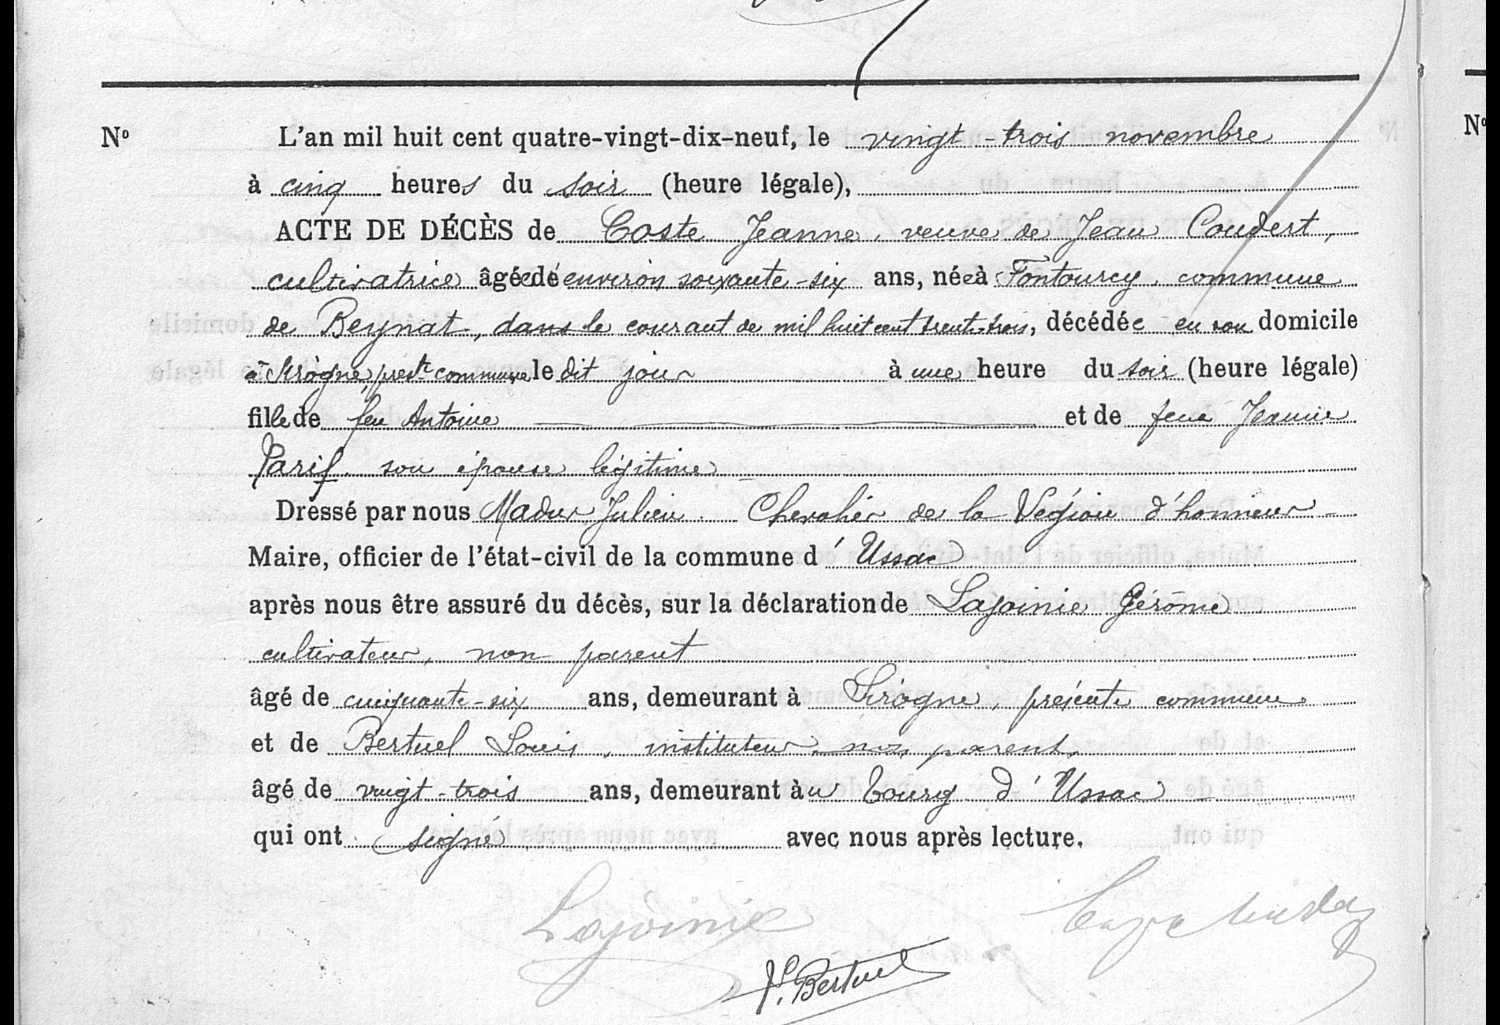 Nº L'an mil huit cent quatre-vingt-dix-neuf, le vingt-trois novembre
à cinq heures du soir (heure légale),
ACTE DE DÉCÈS de Coste Jeanne, veuve de Jean Coudert,
cultivatrice âgée de environ soixante-six ans, née à Fontourcy, commune
de Beynat, dans le courant de mil huit cent trente-trois, décédée en son domicile
à Sirogne, preste commune le dit jour à une heure du soir (heure légale)
fille de feu Antoine et de feue Jeanne
Parif son épouse légitime
Dressé par nous Madur Julien Chevalier de la Légion d'honneur
Maire, officier de l'état-civil de la commune d'Ussac
après nous être assuré du décès, sur la déclaration de Lajoinie Gérome
cultivateur, non parent
âgé de cinquante-six ans, demeurant à Sirogne, présente commune
et de Bertuel Louis, instituteur, non parent,
âgé de vingt-trois ans, demeurant àu bourg d'Ussac
qui ont signé avec nous après lecture.
Lajoinie
L. Bertuel
Nº